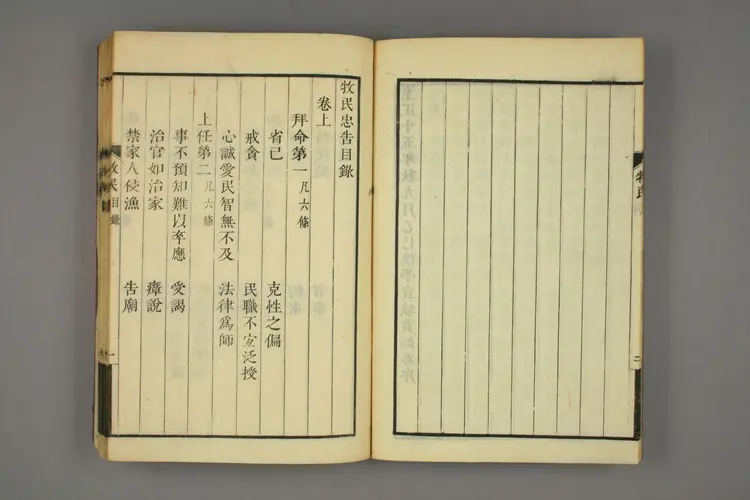 牧民
二
牧民忠告目錄
卷上
拜命第一 凡六條
省己 克性之偏
戒貪 民職不宜泛授
心誠愛民智無不及 法律爲師
上任第二 凡六條
事不預知難以卒應 受謁
治官如治家 瘴說
禁家人侵漁 告廟
牧民 目錄
一